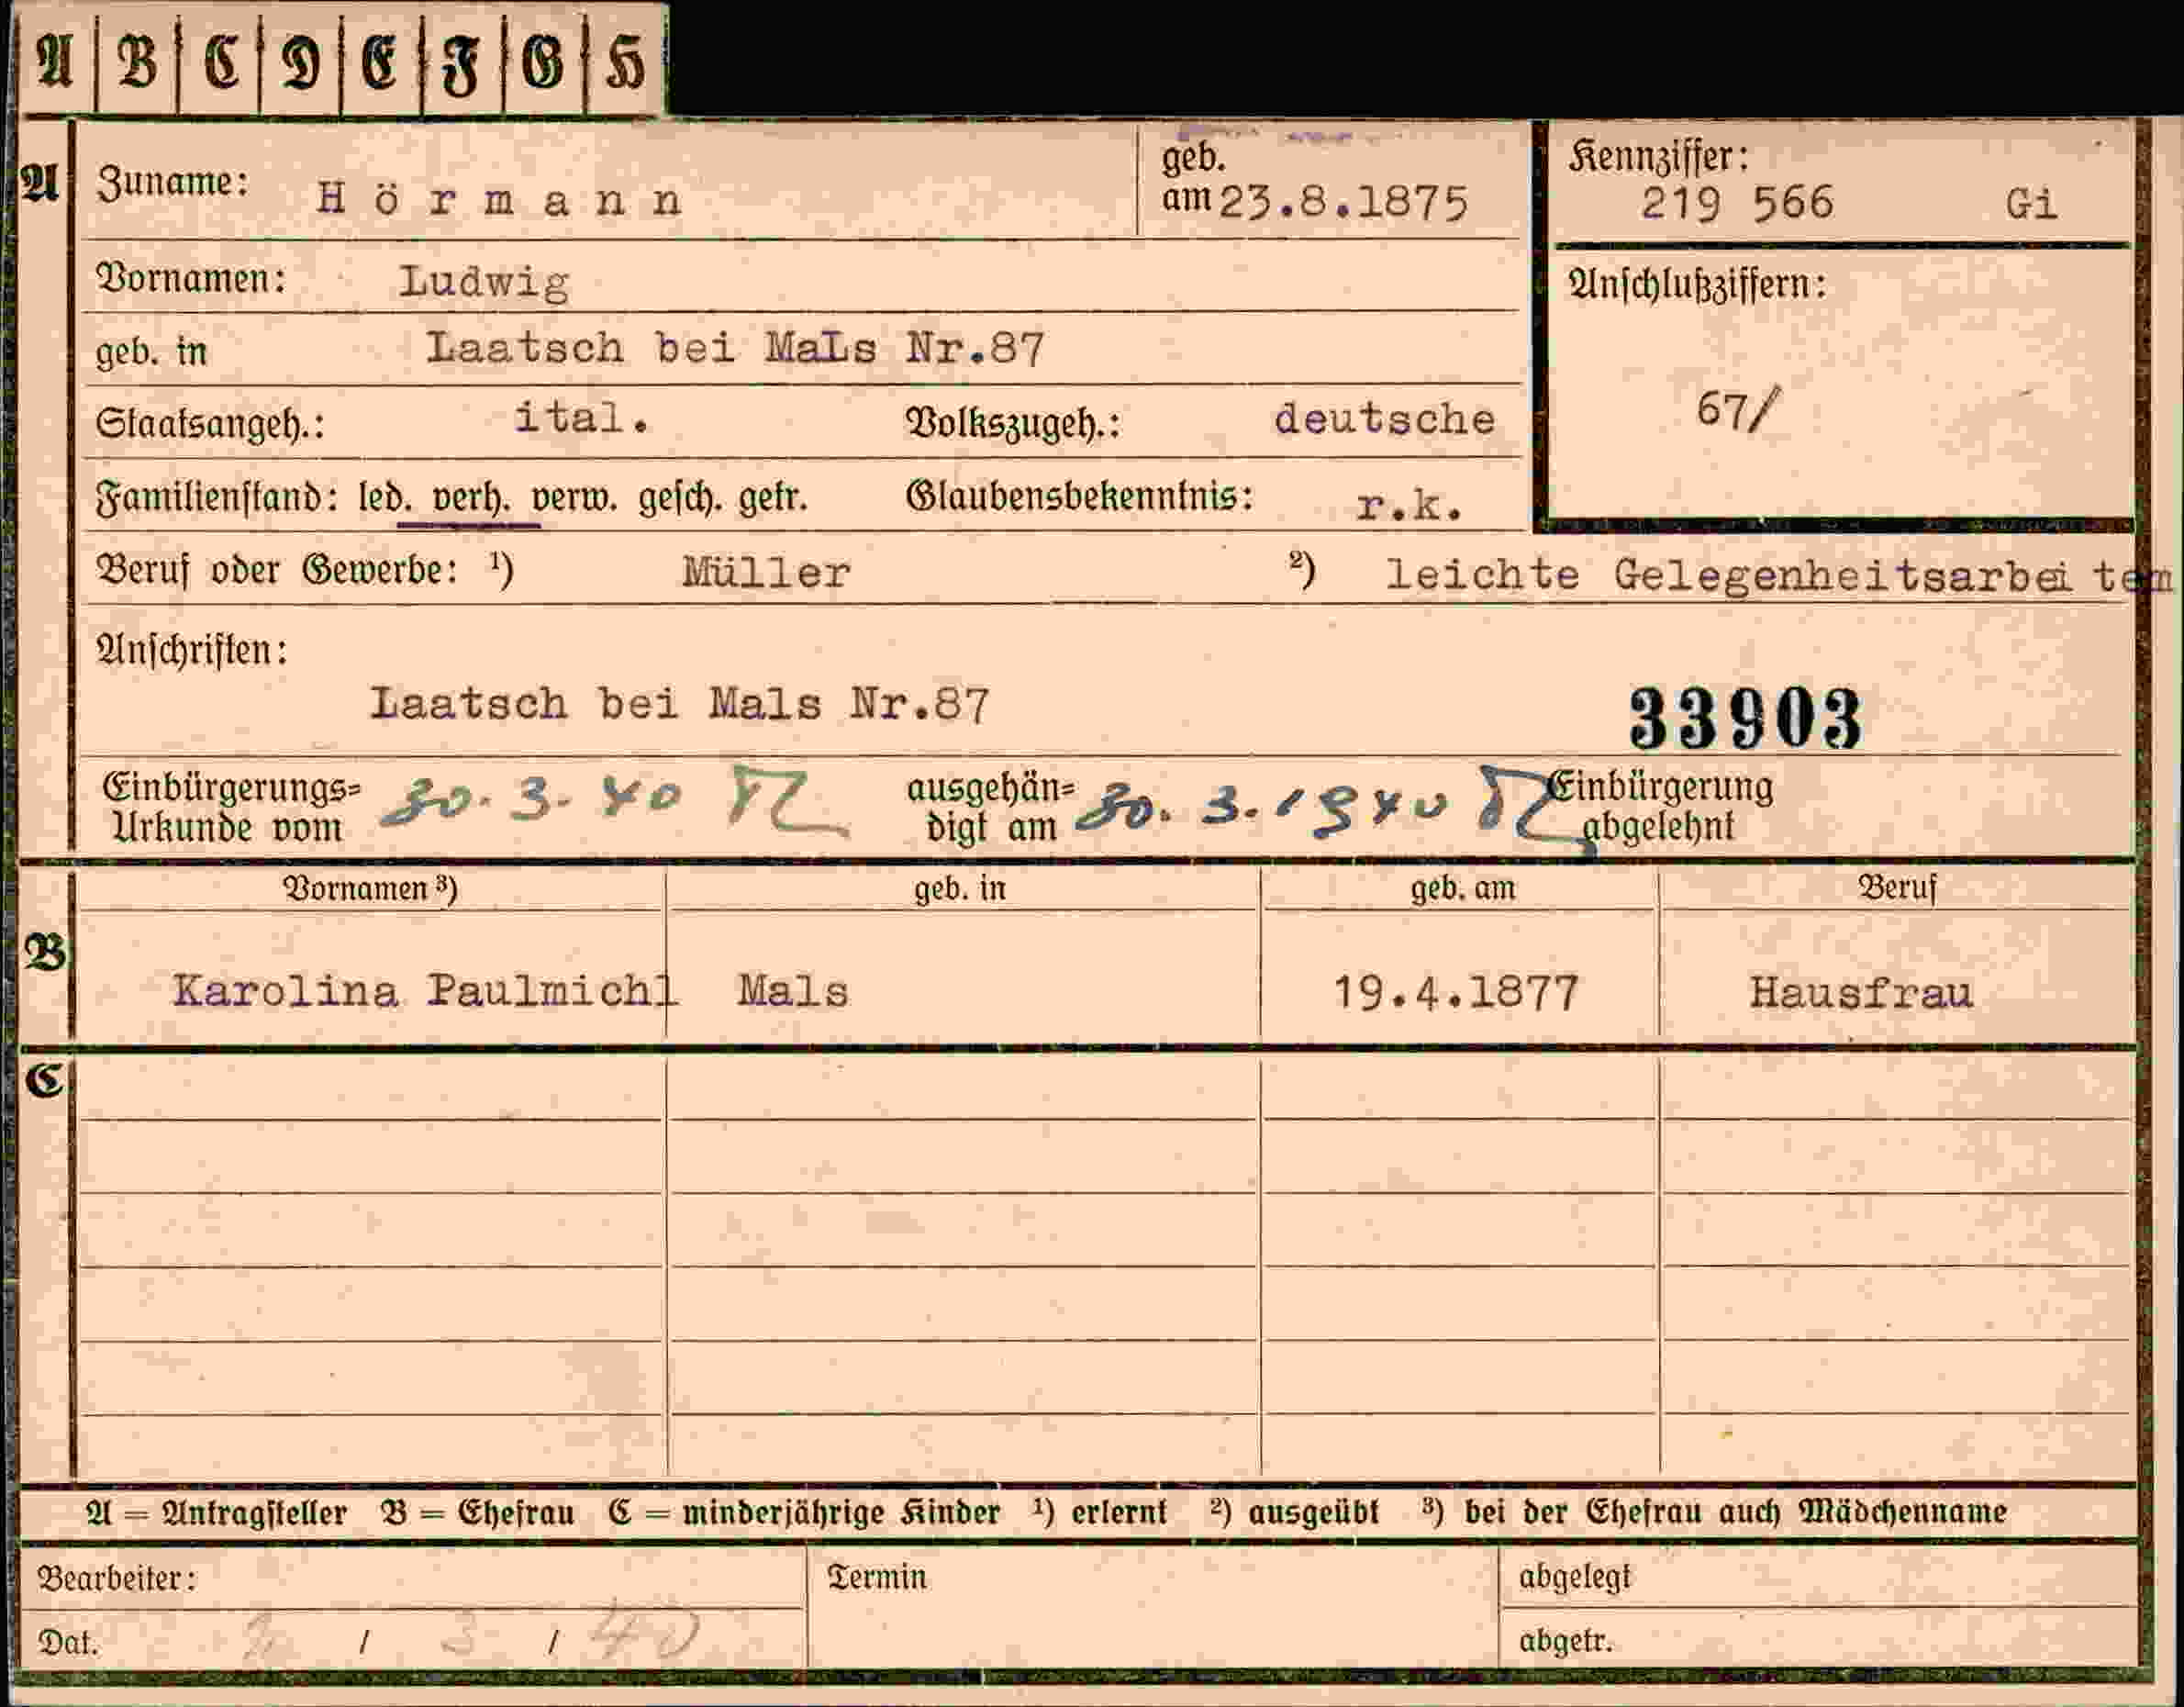 A B C D E F G H
A Zuname: Hörmann geb. am 23.8.1875 Kennziffer: 219 566 Gi
Vornamen: Ludwig Anschlußziffern:
geb. in Laatsch bei MaLs Nr.87
67/
Staatsangeh.: ital. Volkszugeh.: deutsche
Familienstand: led. verh. verw. gesch. getr. Glaubensbekenntnis: r.k.
Beruf oder Gewerbe: ¹) Müller ²) leichte Gelegenheitsarbei ten
Anschriften:
Laatsch bei Mals Nr.87 33903
Einbürgerungs= 30. 3. 40 ausgehän= 30. 3. 1940 Einbürgerung
Urkunde vom digt am abgelehnt
Vornamen ³) geb. in geb. am Beruf
B
Karolina Paulmichl Mals 19.4.1877 Hausfrau
C
A = Antragsteller B = Ehefrau C = minderjährige Kinder ¹) erlernt ²) ausgeübt ³) bei der Ehefrau auch Mädchenname
Bearbeiter: Termin abgelegt
Dat. / 3 / 40 abgetr.